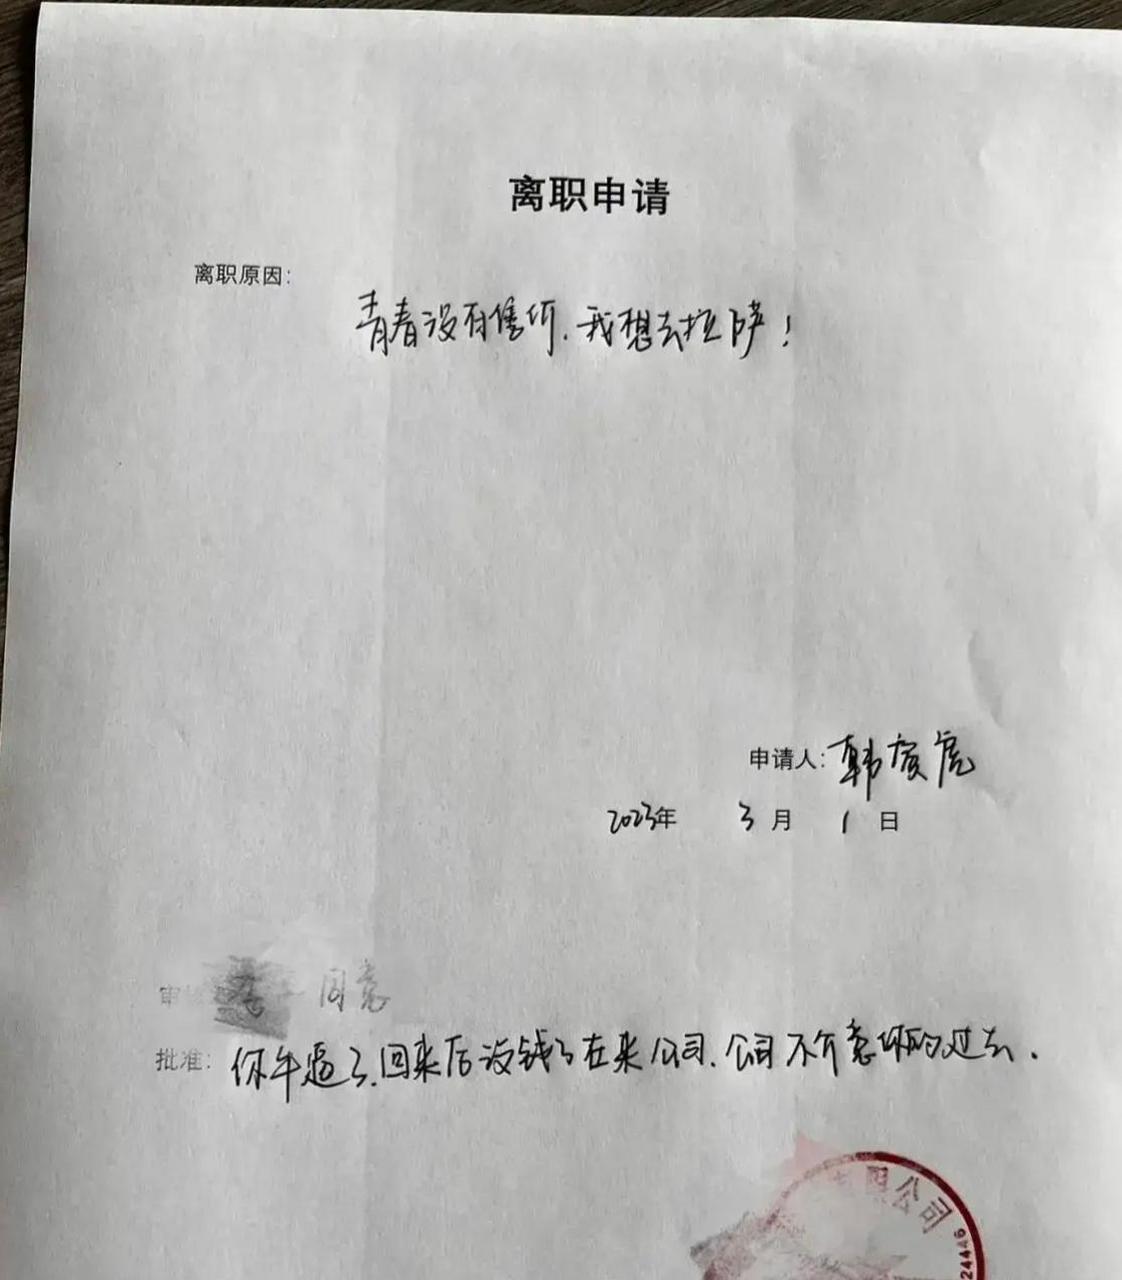 离职申请
离职原因：
青春没有售价.我想去拉萨！
申请人：韩宾虎
2023年 3月 1日
审 李 同意
批准：你牛逼了.回来后没钱了在来公司.公司不介意你的过去.
有限公司
24446